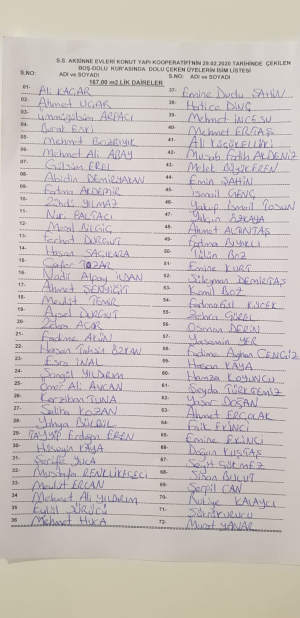 S.S. AKSİNNE EVLERİ KONUT YAPI KOOPERATİFİ'NİN 29.02.2020 TARİHİNDE ÇEKİLEN
BOŞ-DOLU KUR'ASINDA DOLU ÇEKEN ÜYELERİN İSİM LİSTESİ
S.NO: ADI ve SOYADI S.NO: ADI ve SOYADI
167,00 m2 LİK DAİRELER
01- Ali KACAR
02- Ahmet UÇAR
03- Ümmügülsüm ARPACI
04- Burak ESKİ
05- Mehmet BOZBIYIK
06- Mehmet Ali ABAY
07- Gülsüm EREL
08- Abidin DEMİRYAKAN
09- Fatma AKDEMİR
10- YILMAZ
11- Nuri BALTACI
12- Meral BİLGİÇ
13- Ferhat DURGUT
14- Hasan SAĞCILARA
15- Cafer TOZAR
16- Nadir Alpay
17- Ahmet ŞENYİĞİT
18- Mevlüt DEMİR
19- Aysel DURGUT
20- Zehra ACAR
21- Fadime AKIN
22- Hasan Tahsin ÖZKAN
23- Esra İNAL
24- Songül YILDIRIM
25- Ömer Ali AYCAN
26- Kezziban TUNA
27- Saliha KOZAN
28- Yahya BÜLBÜL
29- TAYYİP Erdoğan EREN
30- Hüseyin KAYA
31- Şerife YUCA
32- Mustafa RENKLİKEÇECİ
33- Mevlüt ERCAN
34 Mehmet Ali YILDIRIM
35 Eylül SÜRÜCÜ
36 Mehmet HUCA
37- Emine Dudu ŞAHİN
38- Hatice DİNÇ
39- Mehmet İNCESU
40- Mehmet ERTAŞ
41- Ali KÜÇÜKELLİKÇİ
42- Musab Fatih AKDENİZ
43- Melek BÜYÜKEREN
44- Emin ŞAHİN
45- İsmail GENÇ
46- Yakup İsmail TOSUN
47- Yalçın ÖZKAYA
48- Ahmet ALTINTAŞ
49- Fatma BIYIKLI
50- Tülün BOZ
51- Emine KURT
52- Süleyman DEMİRTAŞ
53- Kamil BOZ
54-
55- Zehra GÜREL
56- Osman DERİN
57- Yasemin YER
58- Fadime Ayhan CENGİZ
59- Hasan KAYA
60- Hamza KOYUNCU
61- Şeyda TÜRKTEMİZ
62- Yaşar DOĞAN
63- Ahmet ERÇOLAK
64- Faik EKİNCİ
65- Emine EKİNCİ
66- Doğan KUŞTAŞ
67- Seyit GÖKMEZ
68- Sinan BULUT
69- Serpil CAN
70- Rukiye KALAYCI
71- Şükrü KURUCU
72- Murat YANAR